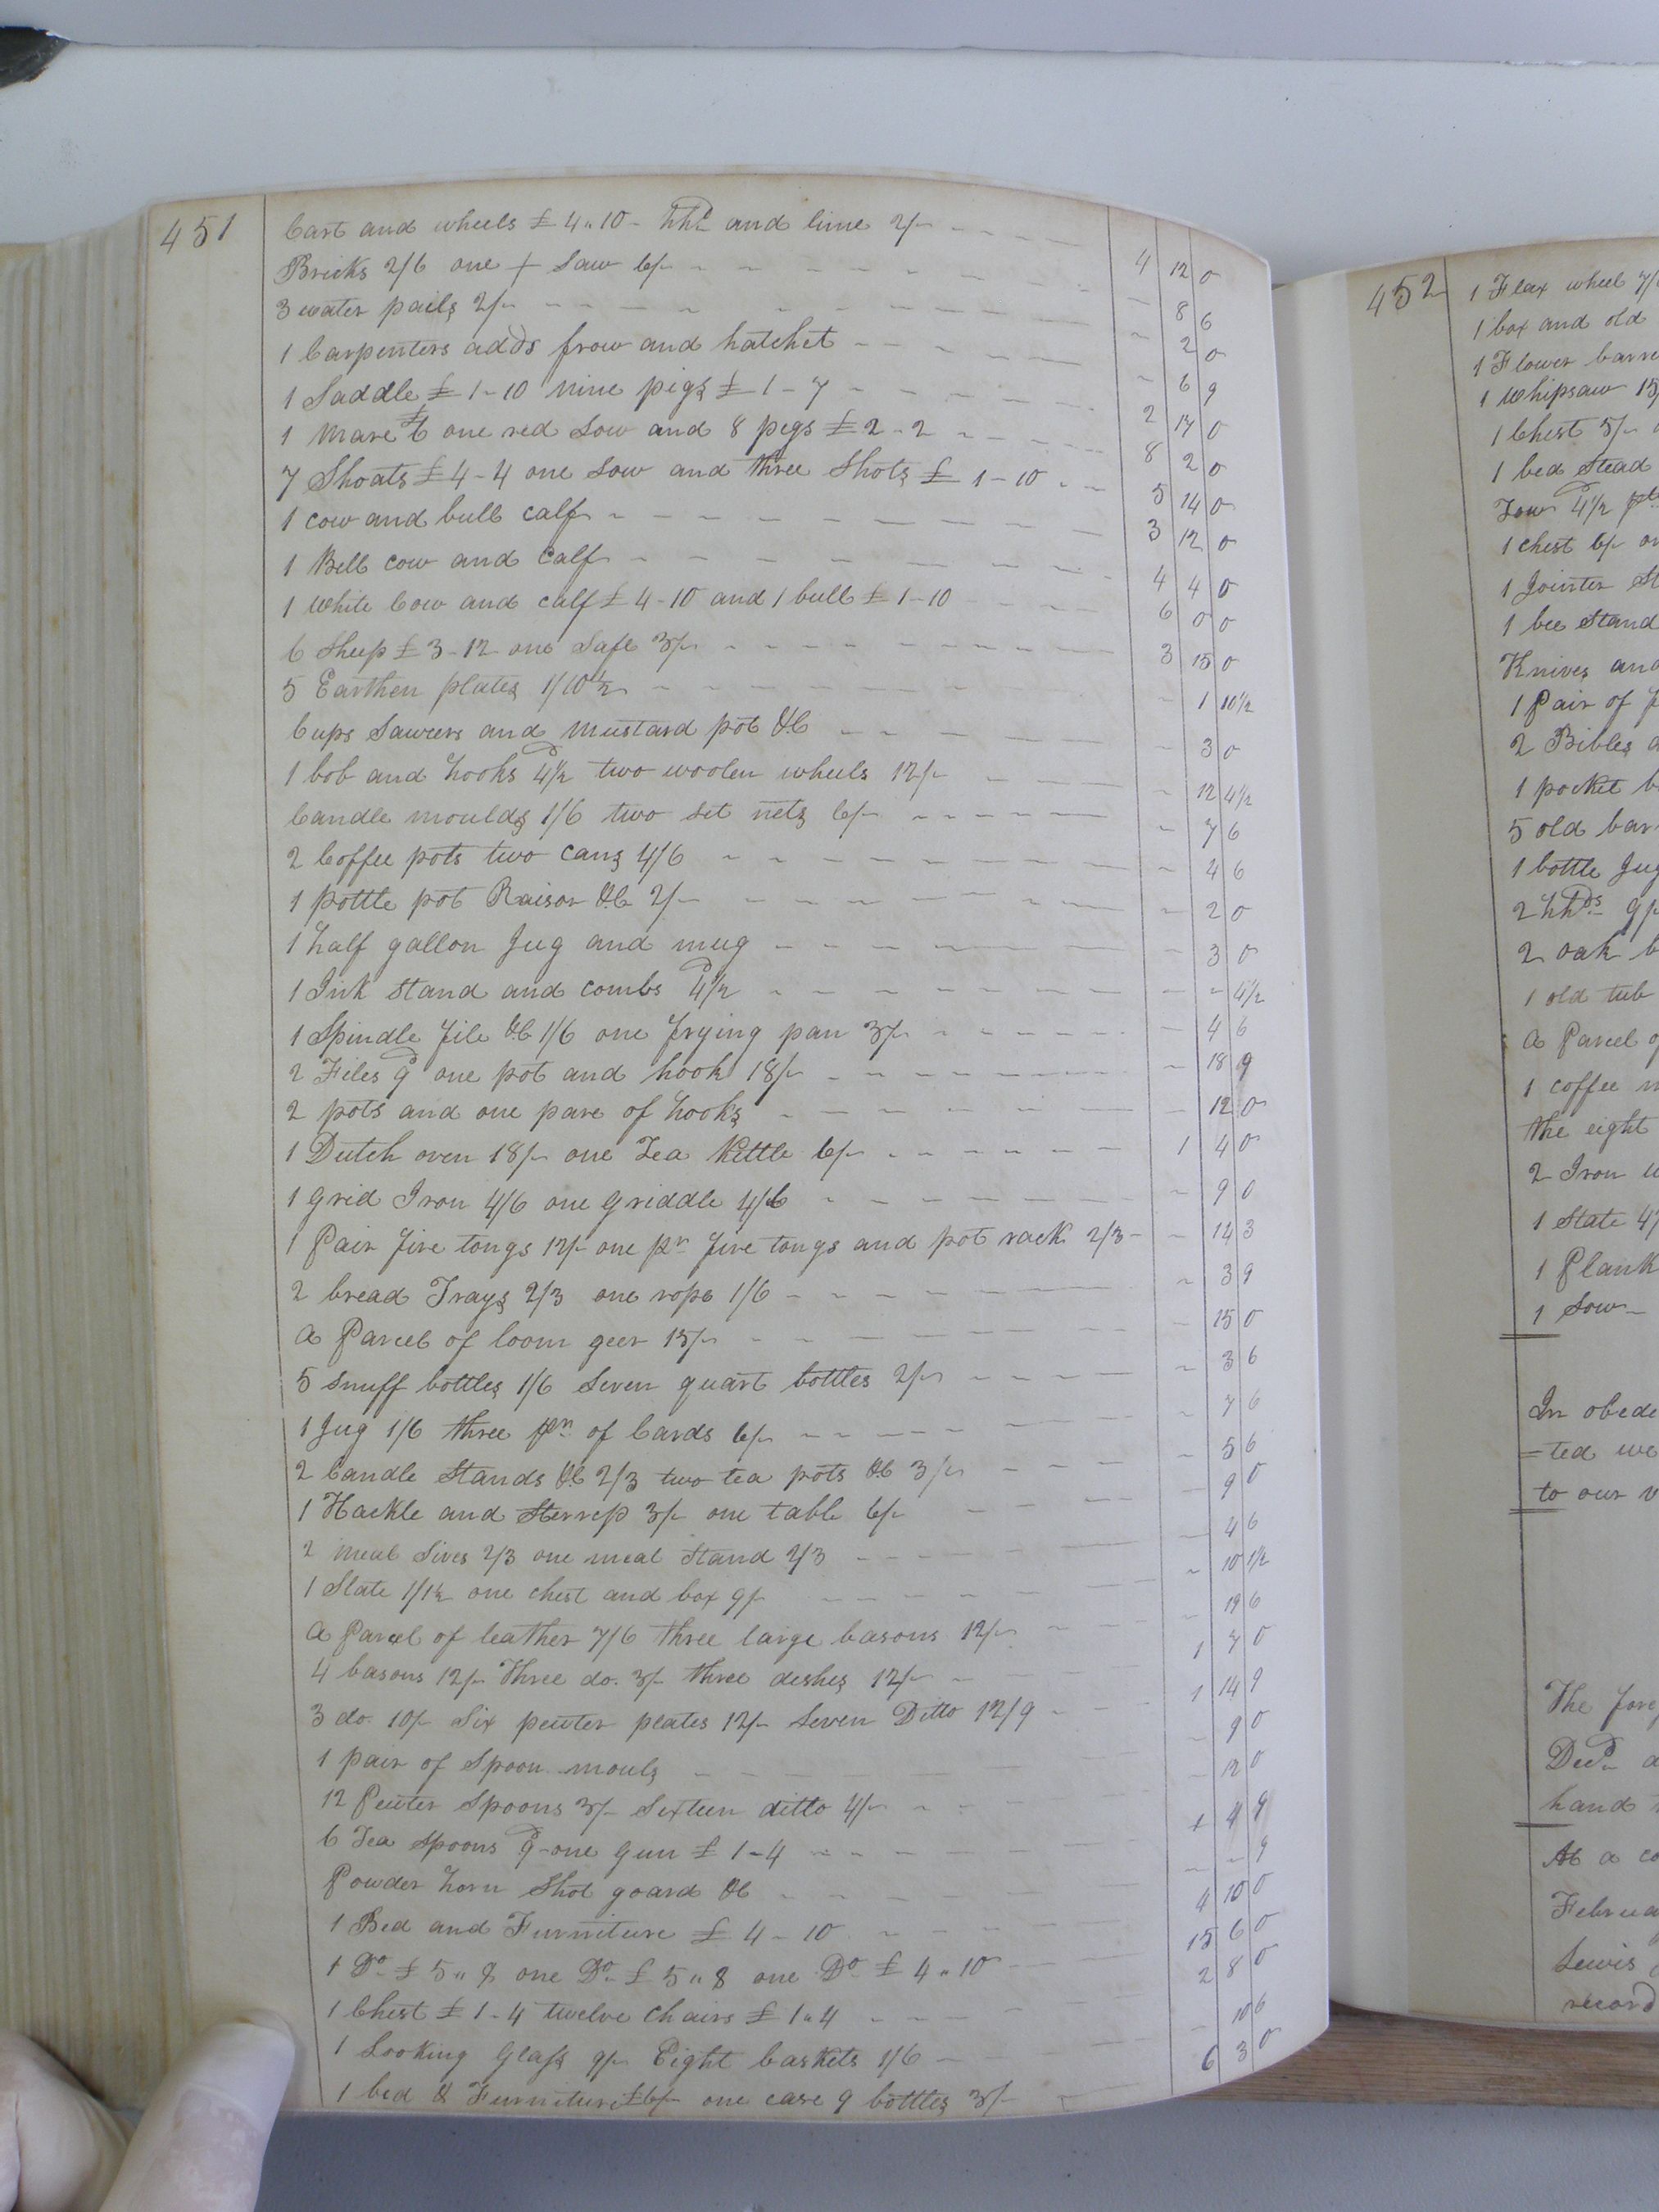 451
Cart and wheels £ 4,,10 - hhd and lime 2/- 4 12 0
Bricks 2/6 one + Saw 6/- - 8 6
3 water pails 2/- - 2 0
1 Carpenters adds frow and hatchet - 6 9
1 Saddle £ 1-10 nine pigs £ 1-7 2 17 0
1 Mare £6 one red Sow and 8 pegs £ 2-2 8 2 0
7 Shoats £ 4-4 one Sow and three Shots £ 1-10 5 14 0
1 cow and bull calf 3 12 0
1 Bell cow and Calf 4 4 0
1 White Cow and calf £ 4-10 and 1 bull £ 1-10 6 0 0
6 Sheep £ 3-12 one Safe 3/- 3 15 0
5 Earthen plates 1/10½ - 1 10½
Cups Sawcers and mustard pot &C - 3 0
1 bob and hooks 4½d two woolen wheels 12/- - 12 4½
Candle moulds 1/6 two set nets 6/- - 7 6
2 Coffee pots two cans 4/6 - 4 6
1 pottle pot Raisor &C 2/- - 2 0
1 half gallon Jug and mug - 3 0
1 Ink stand and combs 4½d - - 4½
1 Spindle file &C 1/6 one frying pan 3/- - 4 6
2 Files 9d one pot and hook 18/- - 18 9
2 pots and one pare of hooks - 12 0
1 Dutch oven 18/- one Tea Kettle 6/- 1 4 0
1 grid Iron 4/6 one griddle 4/6 - 9 0
1 Pair fire tongs 12/- one pr fire tongs and pot rack 2/3 - 14 3
2 bread Trays 2/3 one rope 1/6 - 3 9
a Parcel of loom geer 15/- - 15 0
5 snuff bottles 1/6 Seven quart bottles 2/- - 3 6
1 Jug 1/6 three pr of Cards 6/- - 7 6
2 Candle Stands &C 2/3 two tea pots &C 3/- - 5 6
1 Hackle and Sterrep 3/- one table 6/- - 9 0
2 meal Sives 2/3 one meal Stand 2/3 - 4 6
1 Slate 1/1½ one chest and box 9/- - 10 1½
a Parcel of leather 7/6 three large basons 12/- - 19 6
4 basons 12/- Three do. 3/- three deshes 12/- 1 7 0
3 do. 10/- Six peuter plates 12/- Seven Ditto 12/9 1 14 9
1 pair of Spoon mouls - 9 0
12 Peuter Spoons 3/- Sexteen ditto 4/- - 12 0
6 Tea Spoons 9d one gun £ 1-4 1 4 9
Powder horn Shot goard &C - - 9
1 Bed and Furniture £ 4-10 4 10 0
1 Do £ 5,,8 one Do £ 5,,8 one Do £ 4,,10 15 6 0
1 Chest £ 1-4 twelve Chairs £ 1,,4 2 8 0
1 Looking Glass 9/- Eight baskets 1/6 - 10 6
1 bed & Furniture £6/- one case 9 bottles 3/- 6 3 0
452
1 Flax wheel 7/
1 box and old
1 Flower barre
1 Whipsaw 15/
1 Chest 5/-
1 bed Stead
Tow 4½d
1 chest 6/- on
1 Jointer St
1 bee Stand
Knives and
1 Pair of f
2 Bibles a
1 pocket b
5 old bar
1 bottle Jug
2 hhds 9/-
2 oak b
1 old tub
a Parcel of
1 coffee m
the eight
2 Iron w
1 State 4/
1 Plank
1 Sow
In obede
=ted we
to our v
The fore
Decd a
hand
At a co
Februa
Lewis
record